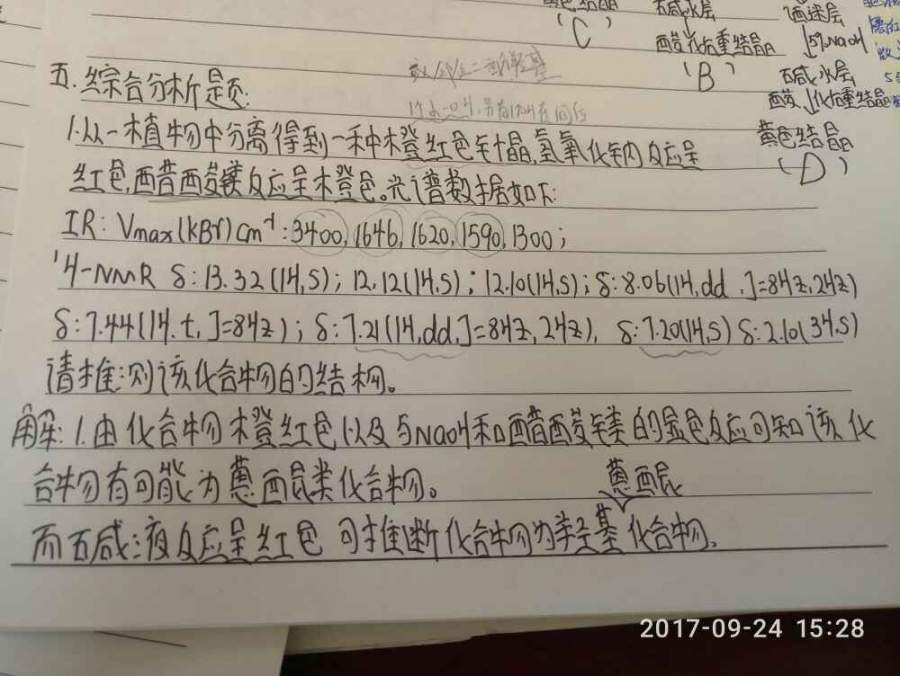 (C)
石碱水层
酸化后重结晶
(B)
酒迷层
5%NaOH
石碱水层
酸化后重结晶
黄色结晶
(D)
五.综合分析题:
1.从一植物中分离得到一种橙红色针晶,氢氧化钠反应呈
红色,醋酸镁反应呈橙色。光谱数据如下:
IR: Vmax(KBr)cm⁻¹:3400,1646,1620,1590,1300;
¹H-NMR δ:13.32(1H,s);12.12(1H,s);12.10(1H,s);δ:8.06(1H,dd,J=8Hz,2Hz)
δ:7.44(1H.t,J=8Hz);δ:7.21(1H,dd,J=8Hz,2Hz),δ:7.20(1H,s)δ:2.10(3H,s)
请推测该化合物的结构。
解:1.由化合物橙红色以及与NaOH和醋酸镁的显色反应可知该化
合物有可能为蒽醌类化合物。
蒽醌
而石碱液反应呈红色可推断化合物为羟基化合物。
2017-09-24 15:28